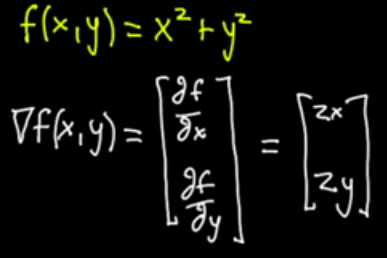 f(x,y) = x² + y²
∇f(x,y) = [∂f/∂x ∂f/∂y] = [2x 2y]